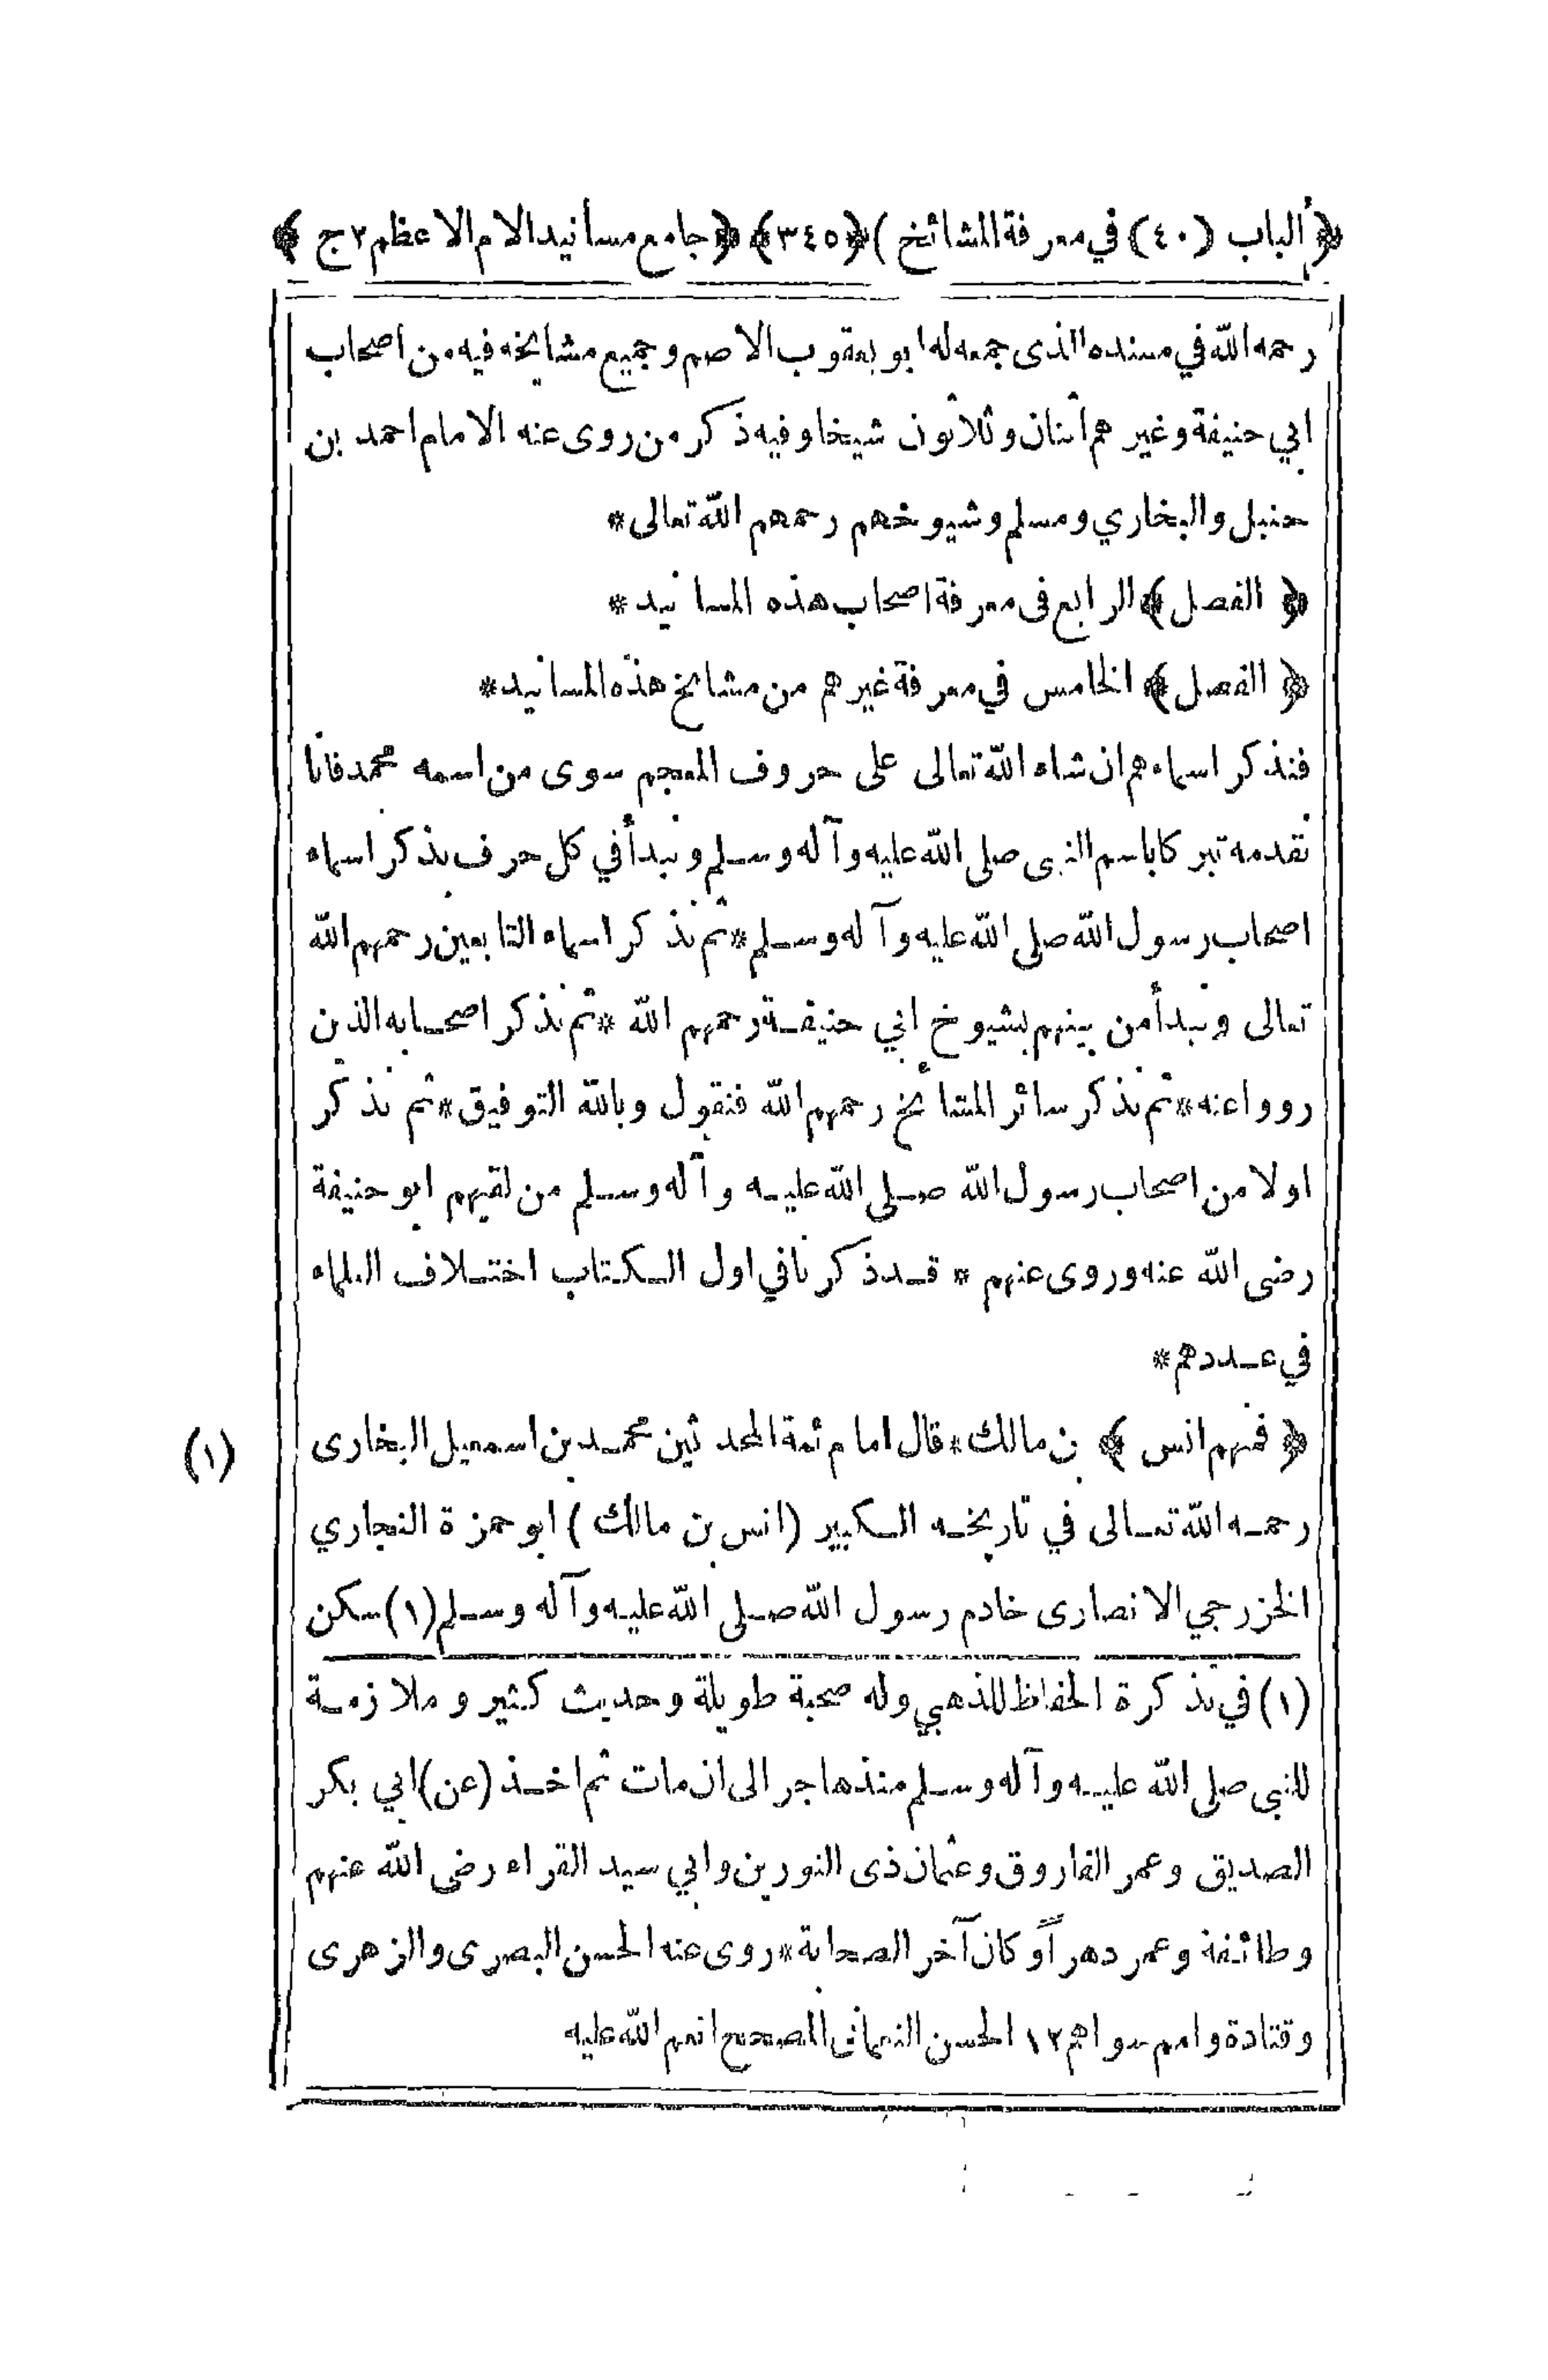 ﴿ ألباب (٤٠) في معرفة المشائخ ) ﴿٣٤٥﴾ ﴿ جامع مسانيد الامام الاعظم ٢ ج ﴾
رحمه الله في مسنده الذى جمعه له ابو يعقوب الاصم وجميع مشايخه فيه من اصحاب
ابي حنيفة وغير هم أثنان وثلاثون شيخا وفيه ذكر من روى عنه الامام احمد بن
حنبل والبخاري ومسلم وشيوخهم رحمهم الله تعالى *
﴿ الفصل ﴾ الرابع فى معرفة اصحاب هذه المسا نيد *
﴿ الفصل ﴾ الخامس في معرفة غيرهم من مشايخ هذه المسانيد *
فنذكر اسماء هم ان شاء الله تعالى على حروف المعجم سوى من اسمه محمد فانا
نقدمه تبركا باسم النبى صلى الله عليه وآله وسلم ونبدأ في كل حرف بذكر اسماء
اصحاب رسول الله صلى الله عليه وآله وسلم * ثم نذكر اسماء التابعين رحمهم الله
تعالى ونبدأ من بينهم بشيوخ ابي حنيفة رحمهم الله * ثم نذكر اصحابه الذين
رووا عنه * ثم نذكر سائر المشائخ رحمهم الله فنقول وبالله التوفيق * ثم نذكر
اولا من اصحاب رسول الله صلى الله عليه وآله وسلم من لقيهم ابو حنيفة
رضى الله عنه وروى عنهم * قد ذكرنا في اول الكتاب اختلاف العلماء
في عددهم *
﴿ فمنهم انس ﴾ بن مالك * قال امام ئمة المحد ثين محمد بن اسمعيل البخارى
(١)
رحمه الله تعالى في تاريخه الكبير (انس بن مالك ) ابو حمزة النجاري
الخزرجي الانصارى خادم رسول الله صلى الله عليه وآله وسلم (١) سكن
(١) في تذكرة الحفاظ للذهبي وله صحبة طويلة وحديث كثير و ملازمة
للنبى صلى الله عليه وآله وسلم منذ هاجر الى ان مات ثم اخذ (عن) ابي بكر
الصديق وعمر الفاروق وعثمان ذى النورين وابي سيد القراء رضى الله عنهم
وطائفة وعمر دهراً وكان آخر الصحابة * روى عنه الحسن البصرى والزهرى
وقتادة وامم سواهم ١٢ الحسن النعمانى المصحح انعم الله عليه